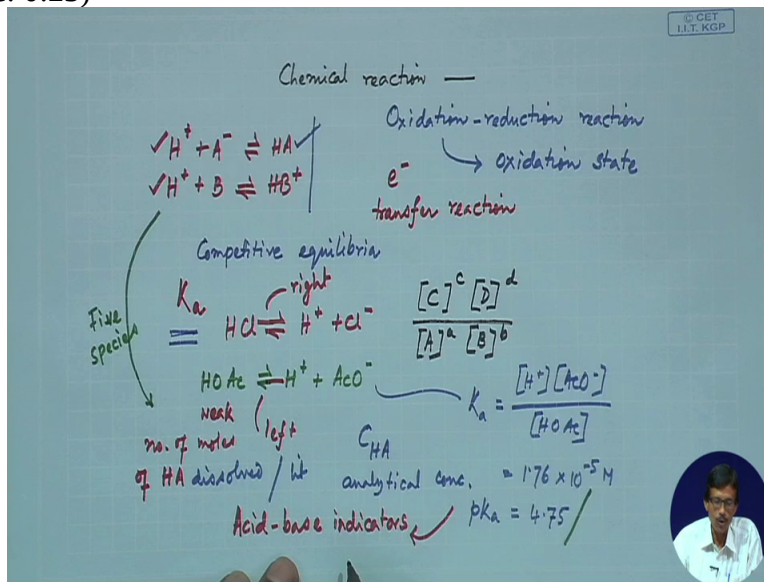 © CET
I.I.T. KGP
Chemical reaction —
Oxidation-reduction reaction
oxidation state
✓H⁺ + A⁻ ⇌ HA ✓
✓H⁺ + B ⇌ HB⁺
e⁻
transfer reaction
Competitive equilibria
Ka
right
HCl ⇌ H⁺ + Cl⁻
[C]ᶜ [D]ᵈ
[A]ᵃ [B]ᵇ
Five
species
HOAc ⇌ H⁺ + AcO⁻
weak
left
Ka = [H⁺][AcO⁻]
[HOAc]
no. of moles
of HA dissolved / lit
C_HA
analytical conc.
= 1.76 × 10⁻⁵ M
pKa = 4.75
Acid-base indicators